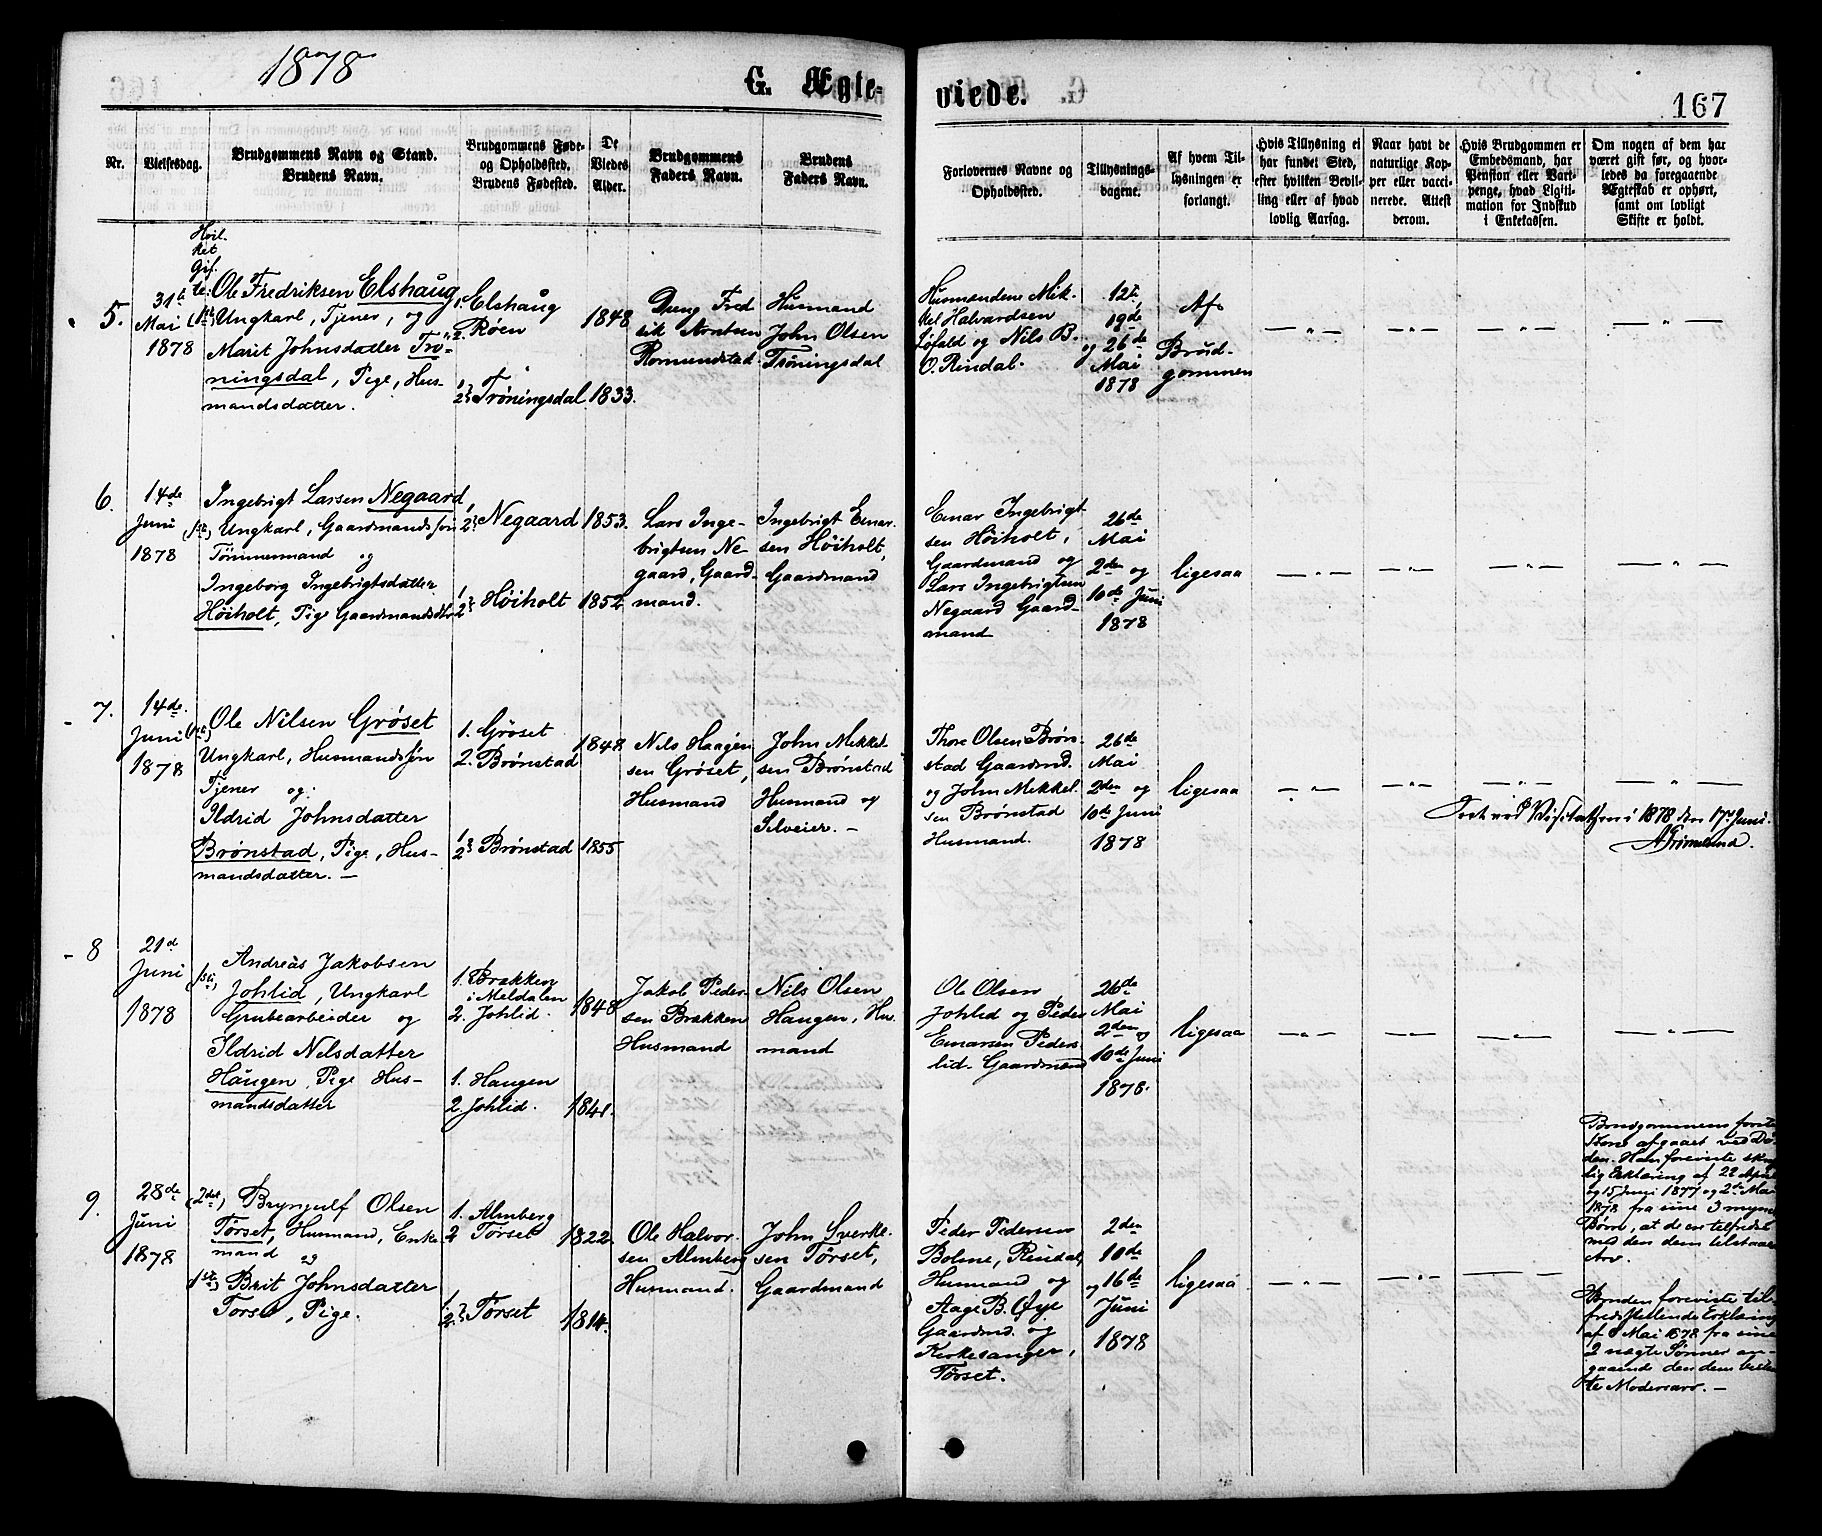 1878
G. Ægte-
viede.
167
Nr.
Vielsesdag.
Brudgommens Navn og Stand.
Brudens Navn.
Brudgommens Føde-
og Opholdssted.
Brudens Fødested.
De
Viedes
Alder.
Brudgommens
Faders Navn.
Brudens
Faders Navn.
Forlovernes Navne og
Opholdssted.
Tillysnings-
dagene.
Af hvem Til-
lysningen er
forlangt.
Hvis Tillysning ei
har fundet Sted,
efter hvilken Bevil-
ling eller af hvad
lovlig Aarsag.
Naar havt de
naturlige Kop-
per eller vacci-
nerede. Attest
derom.
Hvis Brudgommen er
Embedsmand, har
Pension eller Vart-
penge, hvad Ligiti-
mation for Indskud
i Enkekassen.
Om nogen af dem har
været gift før, og hvor-
ledes da foregaaende
Ægteskab er ophørt,
samt om lovligt
Skifte er holdt.
Hvil-
ket
Gif-
te:
5.
31te
Mai
1878
(1ste) Ole Fredriksen Elshaug,
Ungkarl, Tjener, og
Marit Johnsdatter Trø-
ningsdal, Pige, Hus-
mandsdatter.
1. Elshaug
2. Røen
1848
1.
2. Trøningsdal
1833.
Fred
rik Arntsen
Romundstad
Husmand
John Olsen
Trøningsdal
Husmændene Mik-
kel Halvardsen
Løfald og Nils B.
O. Rindal.
12te,
19de
og 26de
Mai
1878
Af
Brud-
gommen
— " —
— " —
— " —
— " —
6.
14de
Juni
1878
Ingebrigt Larsen Negaard,
(1ste) Ungkarl, Gaardmandssøn
Tømmermand og
Ingeborg Ingebrigtsdatter
Høiholt, Pige Gaardmandsdtr
2. Negaard
1853.
1.
2. Høiholt
1852
Lars Inge-
brigtsen Ne-
gaard, Gaard-
mand.
Ingebrigt Einar-
sen Høiholt,
Gaardmand
Einar Ingebrigt-
sen Høiholt,
Gaardmand og
Lars Ingebrigtsen
Negaard Gaard-
mand
26de
Mai
2den og
10de Juni
1878
ligesaa
— " —
— " —
— " —
— " —
7.
14de
Juni
1878
(1ste) Ole Nilsen Grøset
Ungkarl, Husmandssøn
Tjener og:
Ildrid Johnsdatter
Brønstad, Pige, Hus-
mandsdatter. —
1. Grøset
2. Brønstad
1848.
1.
2. Brønstad
1855
Nils Haagen-
sen Grøset,
Husmand
John Mikkel-
sen Brønstad
Husmand og
Selveier. —
Thore Olsen Brøn-
stad Gaardmd.
og John Mikkel-
sen Brønstad
Husmand.
26de
Mai
2den og
10de Juni
1878
ligesaa
— " —
— " —
— " —
— " —
ved Visitatsen i 1878 den 17de Juni.
AGrimelund.
8
21de
Juni
1878
(1ste) Andreas Jakobsen
Johlid, Ungkarl
Grubearbeider og
Ildrid Nilsdatter
Haugen, Pige Hus-
mandsdatter
1. Brækken
i Meldalen
2. Johlid.
1848
1. Haugen
2. Johlid.
1841.
Jakob Peder-
sen Brækken
Husmand
Nils Olsen
Haugen, Hus-
mand
Ole Olsen
Johlid og Peder
Einarsen Peders-
lid. Gaardmænd
26de
Mai
2den og
10de Juni
1878.
ligesaa
— " —
— " —
— " —
— " —
9.
28de
Juni
1878
(2det) Bryngulf Olsen
Tørset, Husmand, Enke-
mand og
1ste) Brit Johnsdatter
Tørset, Pige.
1. Almberg
2 Tørset
1822.
1.
2. Tørset
1814.
Ole Halvor-
sen Almberg
Husmand.
John Sverke-
sen Tørset,
Gaardmand
Peder Pedersen
Bolme, Rindal,
Husmand og
Aage B. Øye
Gaardmd. og
Kirkesanger,
Tørset.
2den
10de
og 16de
Juni
1878
ligesaa
— " —
— " —
— " —
Brudgommens første
Kone afgaaet ved Dø-
den. Han foreviste skrift-
lig Erklæring af 22 April
og 15 Juni 1877 og 2de Mai
1878 fra sine 3 mynd.
Børn, at de er tilfreds
med den dem tilstaaede
Arv.
Bruden foreviste til-
fredsstillende Erklæring
af 8 Mai 1878 fra sine
2 uægte Sønner an-
gaaende den dem
Modersarv. —